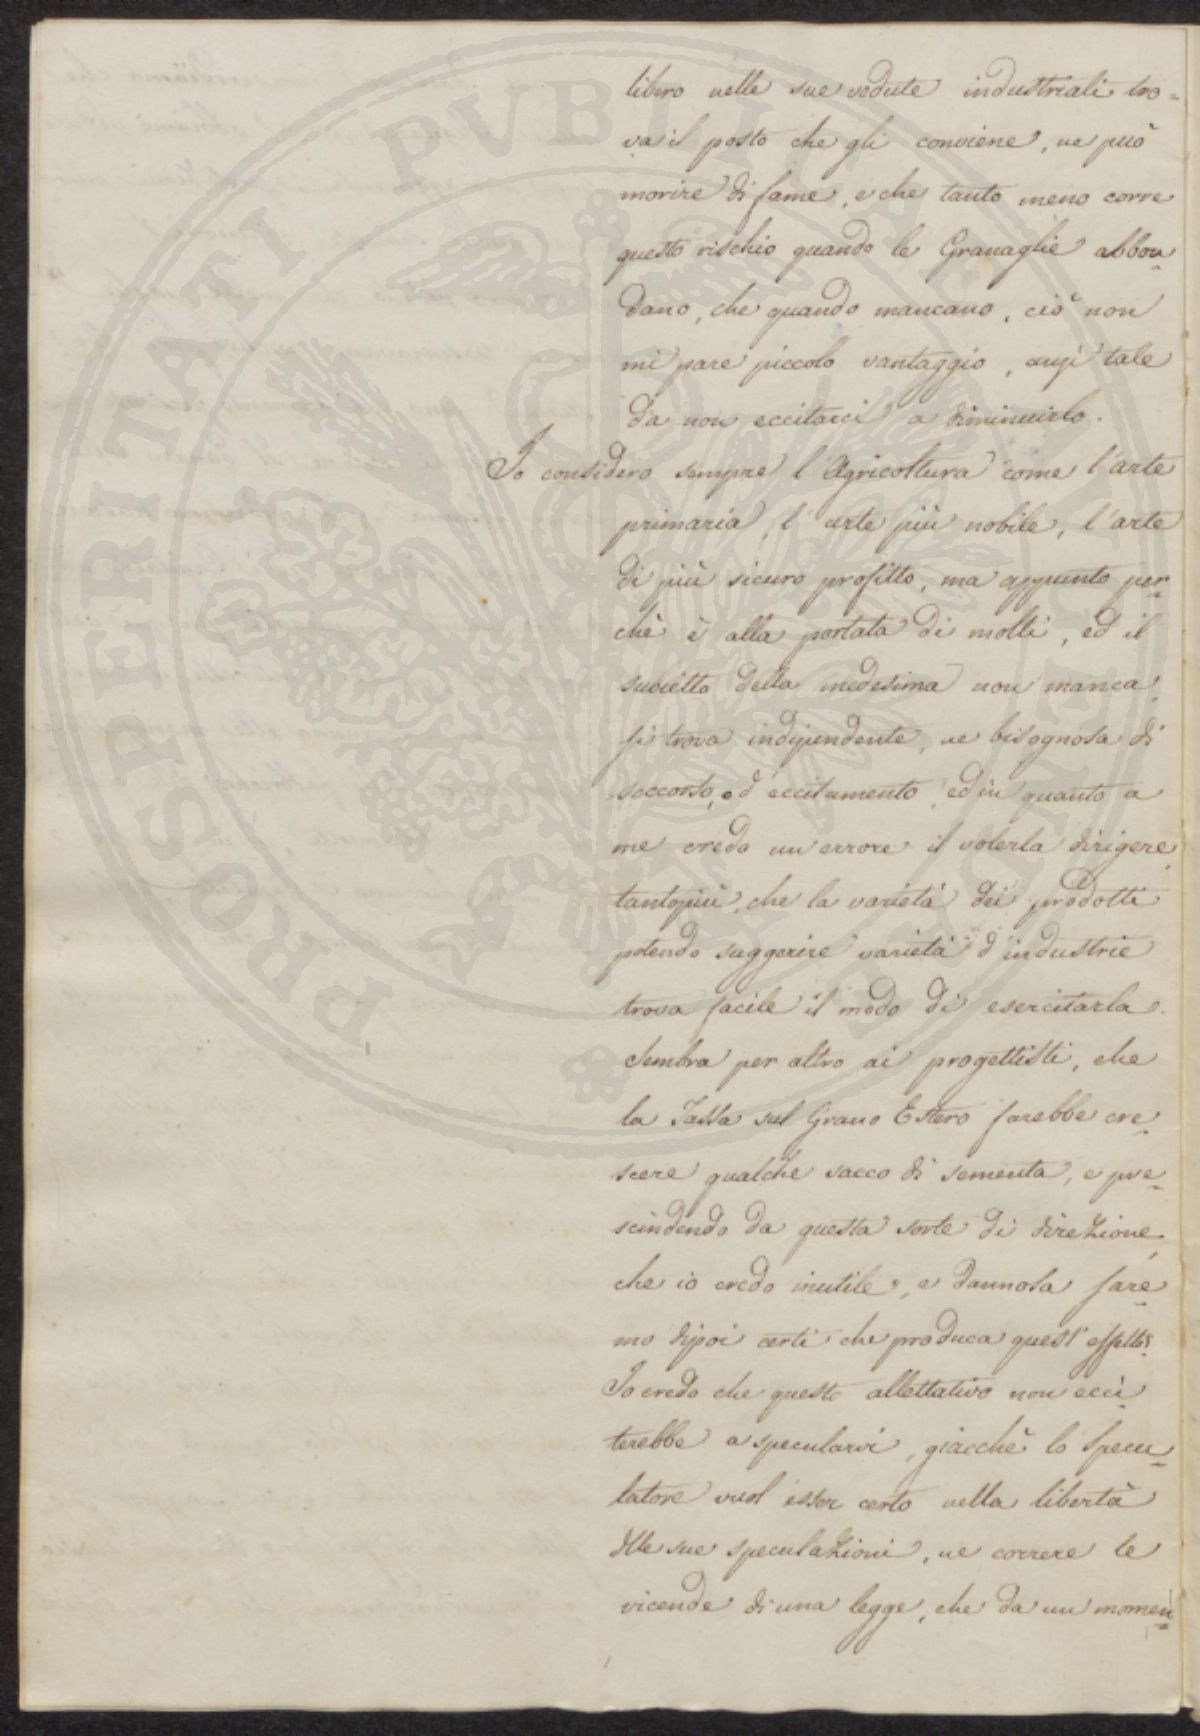 libero nelle sue vedute industriali tro=
va il posto che gli conviene, ne può
morire di fame, e che tanto meno corre
questo rischio quando le Granaglie abbon=
dano, che quando mancano, ciò non
mi pare piccolo vantaggio, anzi tale
da non eccitarci a diminuirlo.
Io considero sempre l'Agricoltura come l'arte
primaria, l'arte più nobile, l'arte
di più sicuro profitto, ma appunto per=
chè è alla portata di molti, ed il
subietto della medesima non manca,
si trova indipendente, ne bisognosa di
soccorso, od eccitamento, ed in quanto a
me credo un'errore il volerla dirigere,
tantopiù, che la varietà dei prodotti
potendo suggerire varietà d'industrie
trova facile il modo di esercitarla.
Sembra per altro ai progettisti, che
la Tassa sul Grano Estero farebbe cre=
scere qualche sacco di sementa, e pre=
scindendo da questa sorte di direzione,
che io credo inutile, e dannosa sare=
mo dipoi certi che produca quest'effetto?
Io credo che questo allettativo non ecci=
terebbe a specularvi, giacchè lo Specu=
latore vuol esser certo nella libertà
delle sue speculazioni, ne correre le
vicende di una legge, che da un momen=
PROSPERITATI PVBLICAE